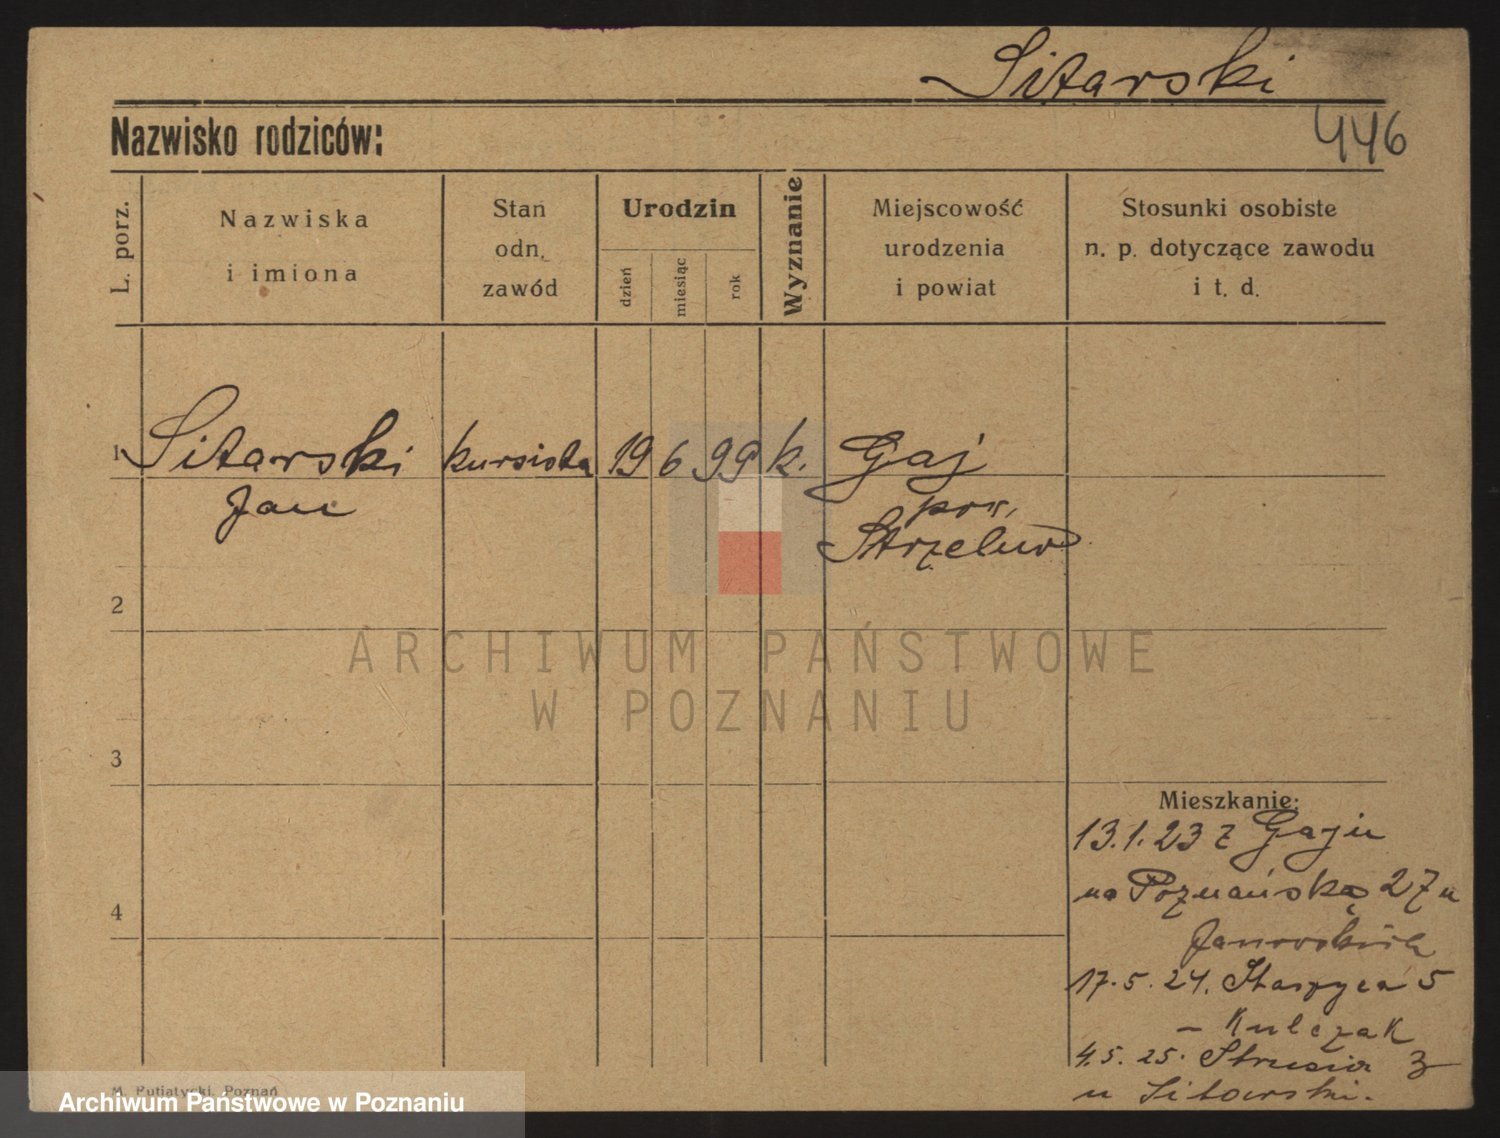 Sitarski
446
Nazwisko rodziców:
L. porz.
Nazwiska
i imiona
Stan
odn.
zawód
Urodzin
dzień
miesiąc
rok
Wyznanie
Miejscowość
urodzenia
i powiat
Stosunki osobiste
n. p. dotyczące zawodu
i t. d.
1 Sitarski kursista 19 6 99 k. Gaj
Jan pow.
Strzelno
2
ARCHIWUM PAŃSTWOWE
W POZNANIU
3
Mieszkanie:
13.1.23 z Gaju
na Poznańską 27 u
4
17.5.24. Staszyca 5
- Kulczak
4.5.25. Strusia 3
u Sitarski.
M. Putiatycki, Poznań
Archiwum Państwowe w Poznaniu